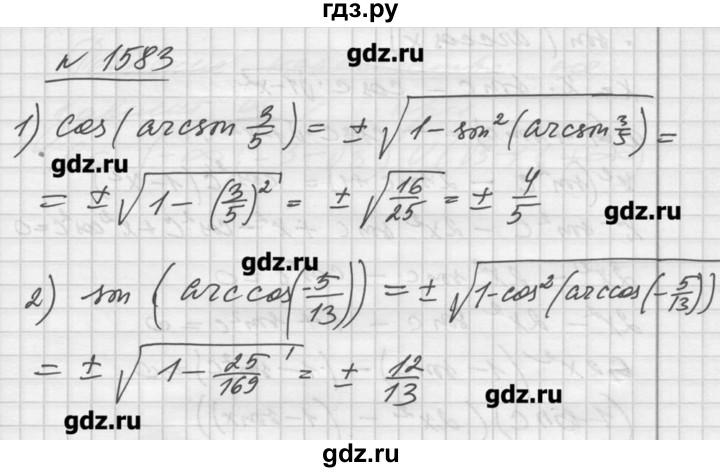 гдз.ру
№ 1583
gdz.ru
1) cos(arcsin 3/5) = ± √(1 - sin²(arcsin 3/5)) =
gdz.ru
= ± √(1 - (3/5)²) = ± √(16/25) = ± 4/5
gdz.ru
gdz.ru
2) sin(arccos(-5/13)) = ± √(1 - cos²(arccos(-5/13)))
= ± √(1 - 25/169) = ± 12/13
gdz.ru
gdz.ru
gdz.ru